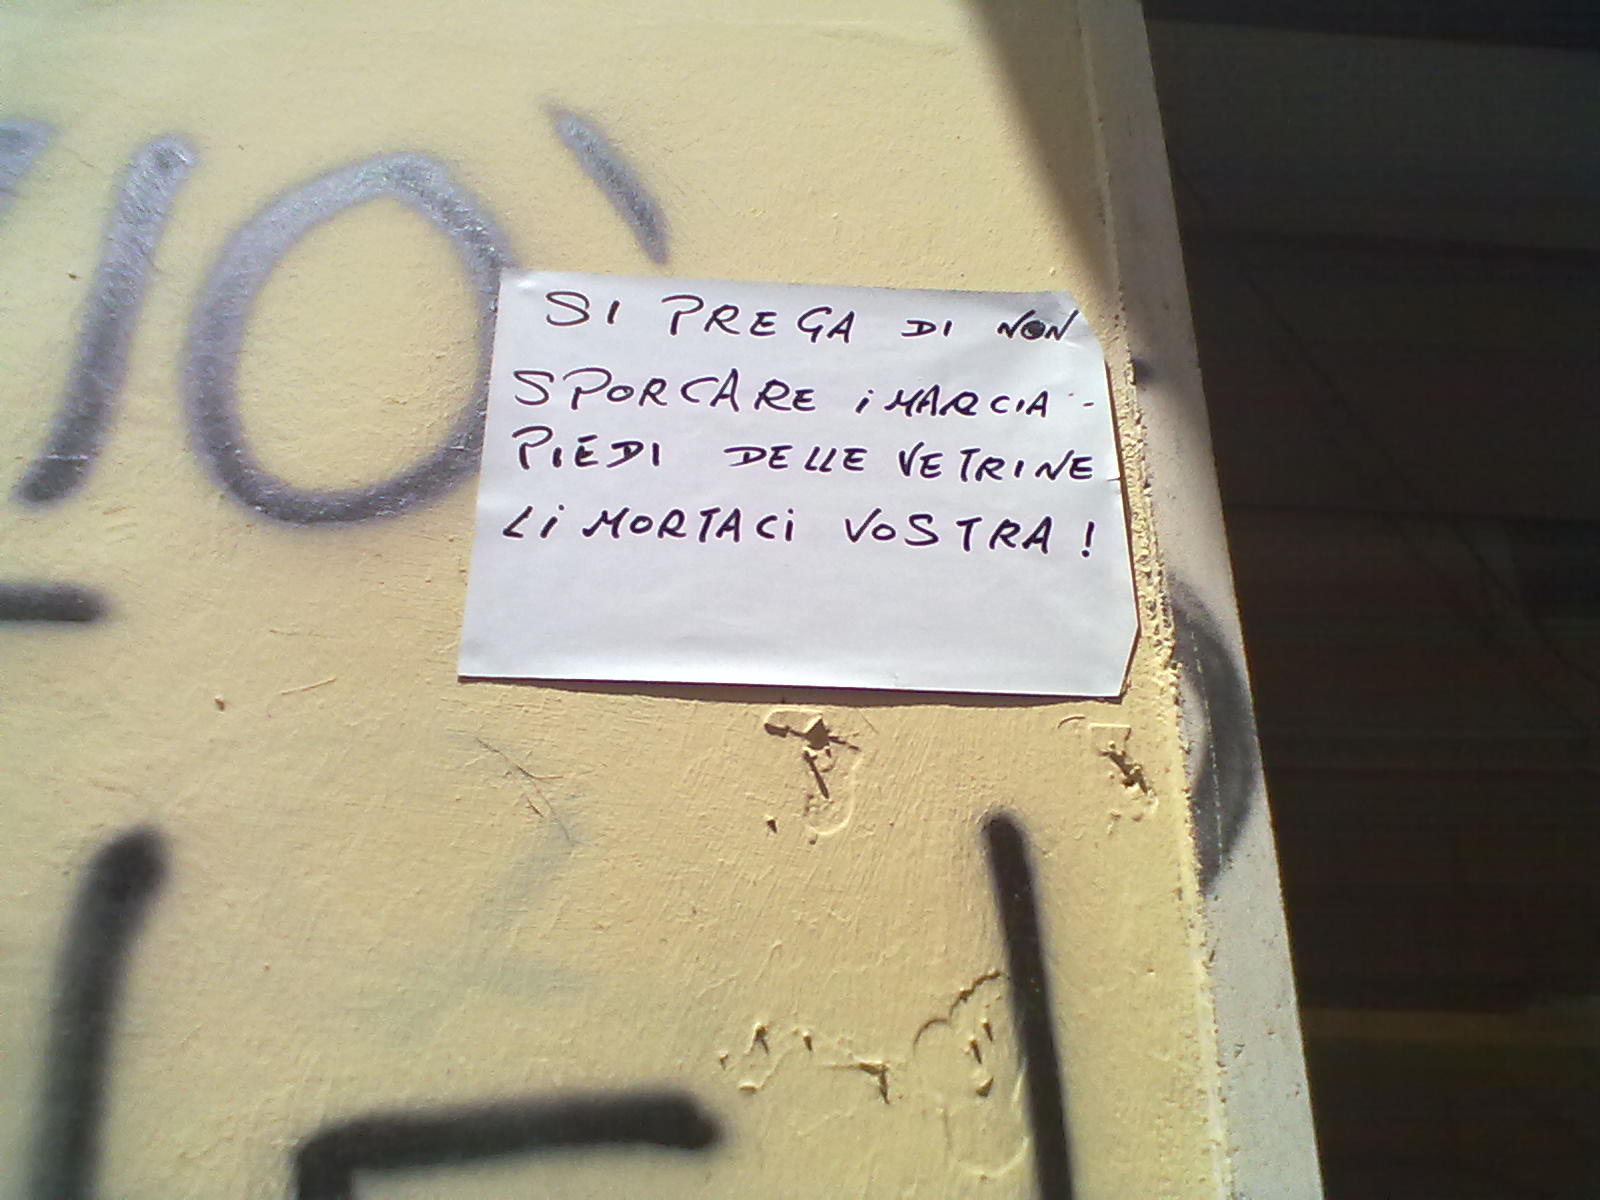 IO'
SI PREGA DI NON
SPORCARE i MARCIA-
PIEDI DELLE VETRINE
Li MORTACi VOSTRA!